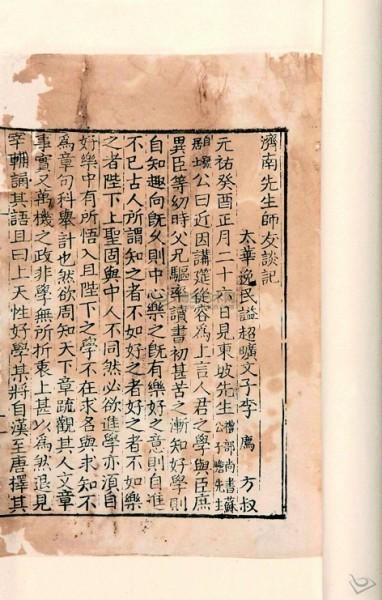 濟南先生師友談記
太華逸民謚超曠文子李 廌 方叔
元祐癸酉正月二十日見東坡先生禮部尚書蘇公子瞻先生
公曰近因講筵從容為上言人君之學與臣庶
異臣等幼時父兄驅率讀書初甚苦之漸知好學則
自知趣向旣久則中心樂之旣有樂好之意則自進
不已古人所謂知之者不如好之者好之者不如樂
之者陛下上聖固與中人不同然必欲進學亦湏自
好樂中有所悟入且陛下之學不在求名與求知不
為章句科舉計也然欲周知天下章疏觀其人文章
事實又萬機之政非學無所折衷上甚以為然退見
宰輔誦其語且曰上天性好學某將自漢至唐擇其